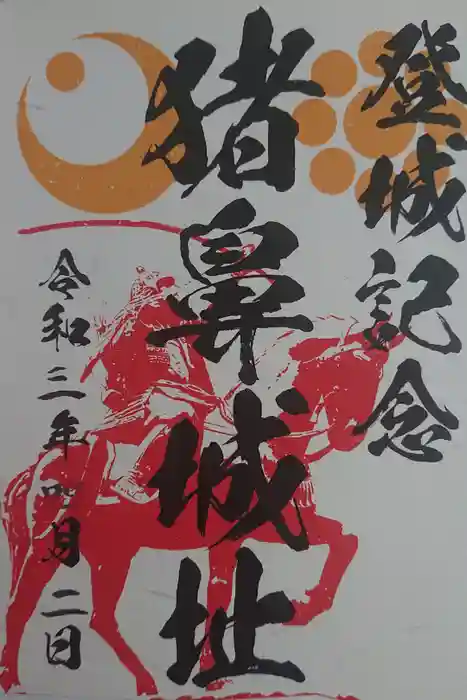 登城記念
猪鼻城址
令和三年四月二日